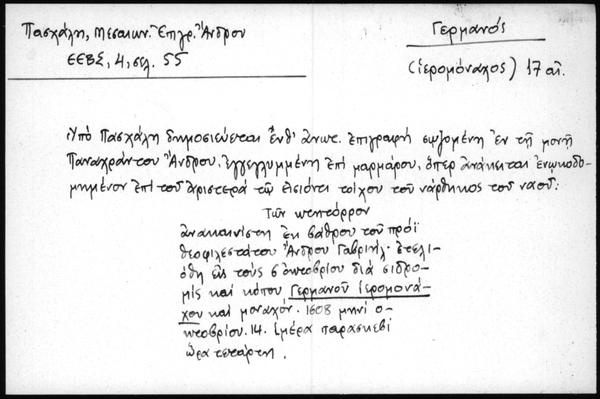 Πασχάλη, Μεσαιων. Ἐπιγρ. Ἄνδρου
ΕΕΒΣ, 4, σελ. 55
Γερμανός
(ἱερομόναχος) 17 αἰ.
Ὑπό Πασχάλη δημοσιεύεται ἔνθ' ἀνωτ. ἐπιγραφή σωζομένη ἐν τῇ μονῇ
Παναχράντου Ἄνδρου, ἐγγεγλυμμένη ἐπί μαρμάρου, ὅπερ ἀνάκειται ἐνῳκοδο-
μημένον ἐπί τοῦ ἀριστερᾷ τῷ εἰσιόντι τοίχου τοῦ νάρθηκος τοῦ ναοῦ:
Τῶν
ἀνακαινίστη ἐκ βάθρου τοῦ πρόϊ
θεοφιλεστάτου Ἄνδρου Γαβριήλ· ἐτελι-
όθη εἰς τούς 6 ὀκτοβρίου διά σιδρο-
μῖς καί κόπου Γερμανοῦ ἱερομονά-
χου καί μοναχόν. 1608 μηνί ο-
κτοβρίου. 14. ἱμέρα παρασκεβί
ὥρα τετάρτη.